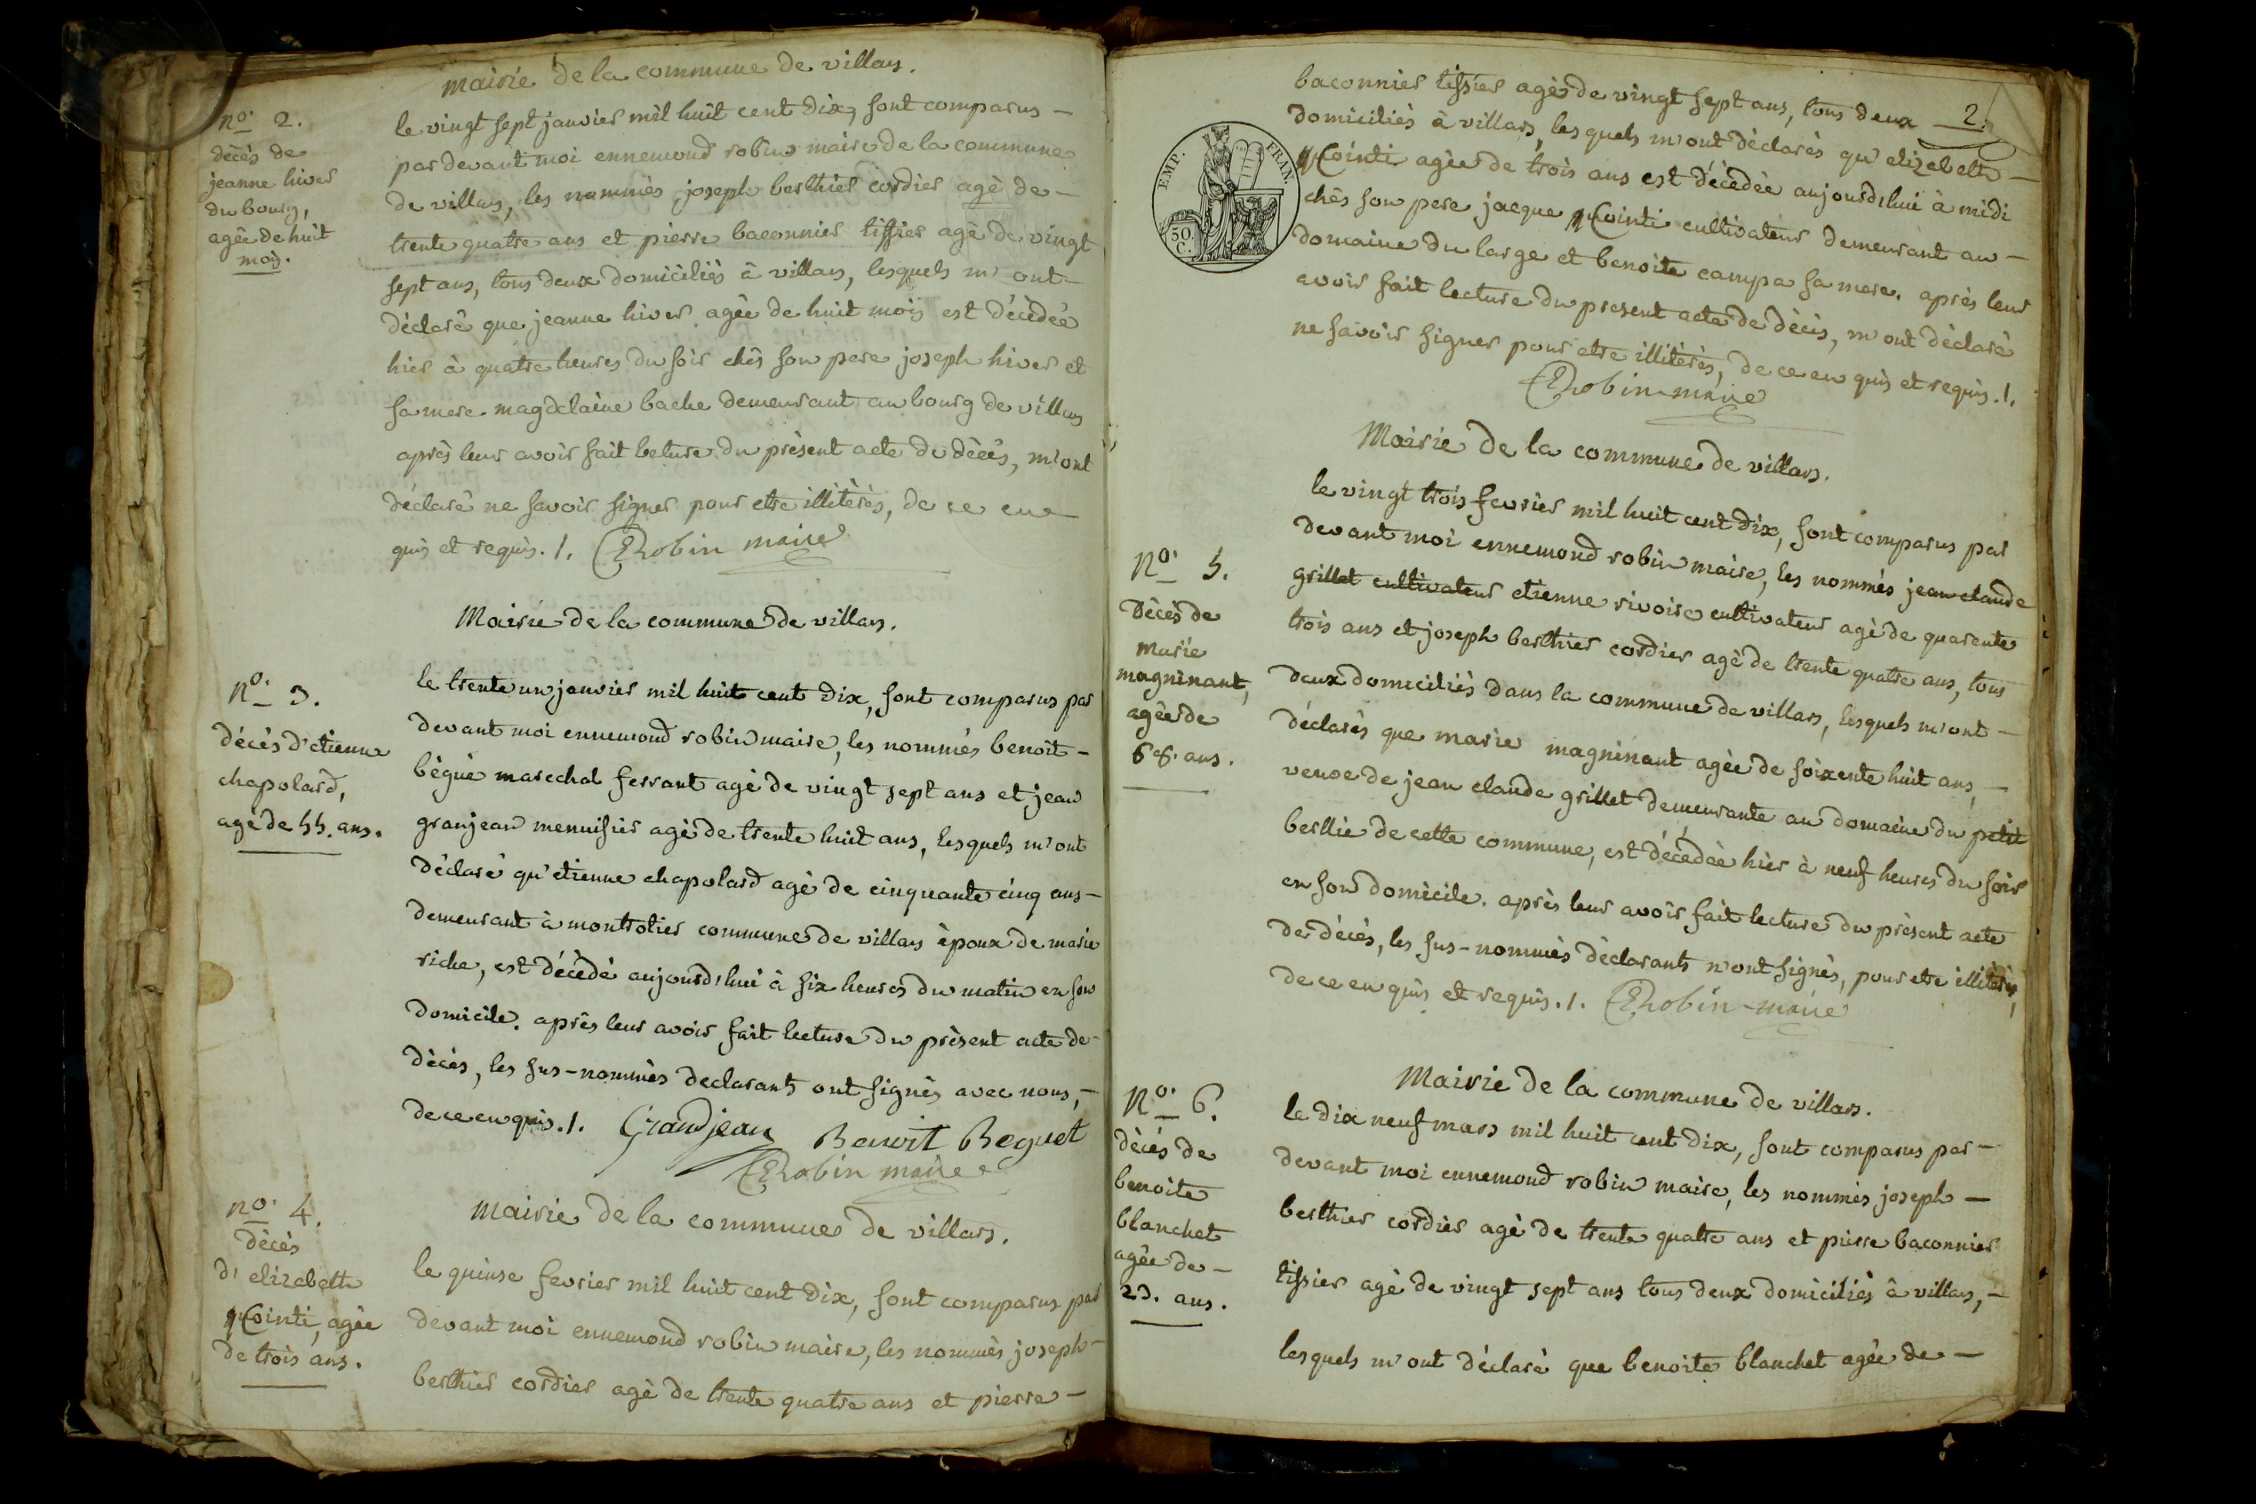 mairie de la commune de villars.
no. 2.
décès de
jeanne hiver
du bourg,
agée de huit
mois.
le vingt sept janvier mil huit cent dix, sont comparus -
pardevant moi ennemond robin maire de la commune
de villars, les nommés joseph berthier cordier agé de -
trente quatre ans et pierre baconnier tissier agé de vingt
sept ans, tous deux domiciliés à villars, lesquels m'ont -
déclaré que jeanne hiver agée de huit mois est décédée
hier à quatre heures du soir chés son pere joseph hiver et
sa mere magdelaine bache demeurant au bourg de villars
après leur avoir fait lecture du présent acte de décès, m'ont
déclaré ne savoir signer pour etre illitérés, de ce en -
quis et requis. /. ERobin maire
Mairie de la commune de villars.
no. 3.
décès d'etienne
chapolard,
agé de 55. ans.
le trente un janvier mil huit cent dix, sont comparus par
devant moi ennemond robin maire, les nommés benoit -
bégué marechal ferrant agé de vingt sept ans et jean
granjean menuisier agé de trente huit ans, lesquels m'ont
déclaré qu'etienne chapolard agé de cinquante cinq ans -
demeurant à montrolier commune de villars époux de marie
riche, est décédé aujourd'hui à six heures du matin en son
domicile. après leur avoir fait lecture du présent acte de -
décès, les sus-nommés declarants ont signés avec nous, -
de ce en quis. /. Grandjean Benoit Beguet
ERobin maire
no. 4.
décès
d'elizabeth
Cointi, agée
de trois ans.
mairie de la commune de villars.
le quinse fevrier mil huit cent dix, sont comparus par
devant moi ennemond robin maire, les nommés joseph -
berthier cordier agé de trente quatre ans et pierre -
2.
baconnier tissier agé de vingt sept ans, tous deux
domiciliés à villars, lesquels m'ont déclarés qu'elizabeth -
Cointi agée de trois ans est décédée aujourd'hui à midi
chés son pere jacque Cointi cultivateur demeurant au -
domaine du large et benoite campa sa mere. après leur
avoir fait lecture du present acte de décès, m'ont déclaré
ne savoir signer pour etre illitérés, de ce en quis et requis. /.
ERobin-maire
EMP. FRAN.
50.
C.
Mairie de la commune de villars.
No. 5.
Décès de
marie
magninant,
agée de
68. ans.
le vingt trois fevrier mil huit cent dix, sont comparus par
devant moi ennemond robin maire, les nommés jean claude
grillet cultivateur etienne rivoire cultivateur agé de quarente
trois ans et joseph berthier cordier agé de trente quatre ans, tous
deux domiciliés dans la commune de villars, lesquels m'ont -
déclarés que marie magninant agée de soixente huit ans, -
veuve de jean claude grillet demeurante au domaine du petit
berlie de cette commune, est décédée hier à neuf heures du soir
en son domicile. après leur avoir fait lecture du présent acte
de décès, les sus-nommés déclarants n'ont signés, pour etre illitérés,
de ce en quis et requis. /. ERobin-maire
Mairie de la commune de villars.
No. 6.
décès de
benoite
blanchet
agée de -
23. ans.
le dix neuf mars mil huit cent dix, sont comparus par -
devant moi ennemond robin maire, les nommés joseph -
berthier cordier agé de trente quatre ans et pierre baconnier
tissier agé de vingt sept ans tous deux domiciliés à villars, -
lesquels m'ont déclaré que benoite blanchet agée de -